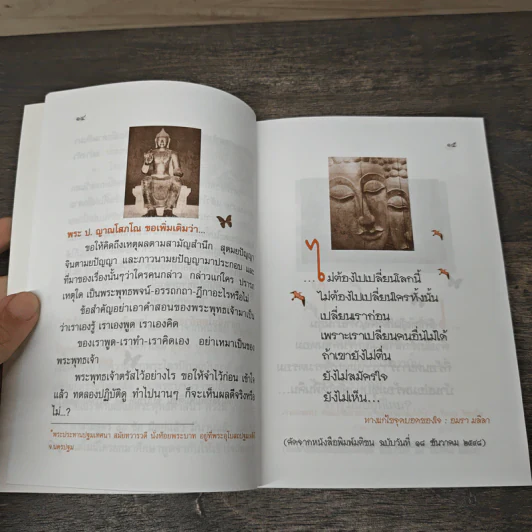 ๑๔
พระ ป. ญาณโสภโณ ขอเพิ่มเติมว่า...
ขอให้คิดถึงเหตุผลตามสามัญสำนึก สุตมยปัญญา
จินตามยปัญญา และภาวนามยปัญญามาประกอบ และ
ที่มาของเรื่องนั้นๆว่าใครคนกล่าว กล่าวแก่ใคร ปรารภ
เหตุใด เป็นพระพุทธพจน์-อรรถกถา-ฎีกาอะไรหรือไม่
ข้อสำคัญอย่าเอาคำสอนของพระพุทธเจ้ามาเป็น
ว่าเราเองรู้ เราเองพูด เราเองคิด
ของเราพูด-เราทำ-เราคิดเอง อย่าเหมาเป็นของ
พระพุทธเจ้า
พระพุทธเจ้าตรัสไว้อย่างไร ขอให้จำไว้ก่อน เข้าใจ
แล้ว ทดลองปฏิบัติดู ทำไปนานๆ ก็จะเห็นผลดีจริงหรือ
ไม่...?
พระประธานปฐมเทศนา สมัยทวารวดี นั่งห้อยพระบาท อยู่ที่พระอุโบสถปฐมเจดีย์
จ.นครปฐม
๑๕
...ไม่ต้องไปเปลี่ยนโลกนี้
ไม่ต้องไปเปลี่ยนใครทั้งนั้น
เปลี่ยนเราก่อน
เพราะเราเปลี่ยนคนอื่นไม่ได้
ถ้าเขายังไม่ตื่น
ยังไม่สมัครใจ
ยังไม่เห็น...
ทางแก้ไขจุดบอดของใจ : อมรา มลิลา
(คัดจากหนังสือพิมพ์มติชน ฉบับวันที่ ๑๘ ธันวาคม ๒๕๔๘)